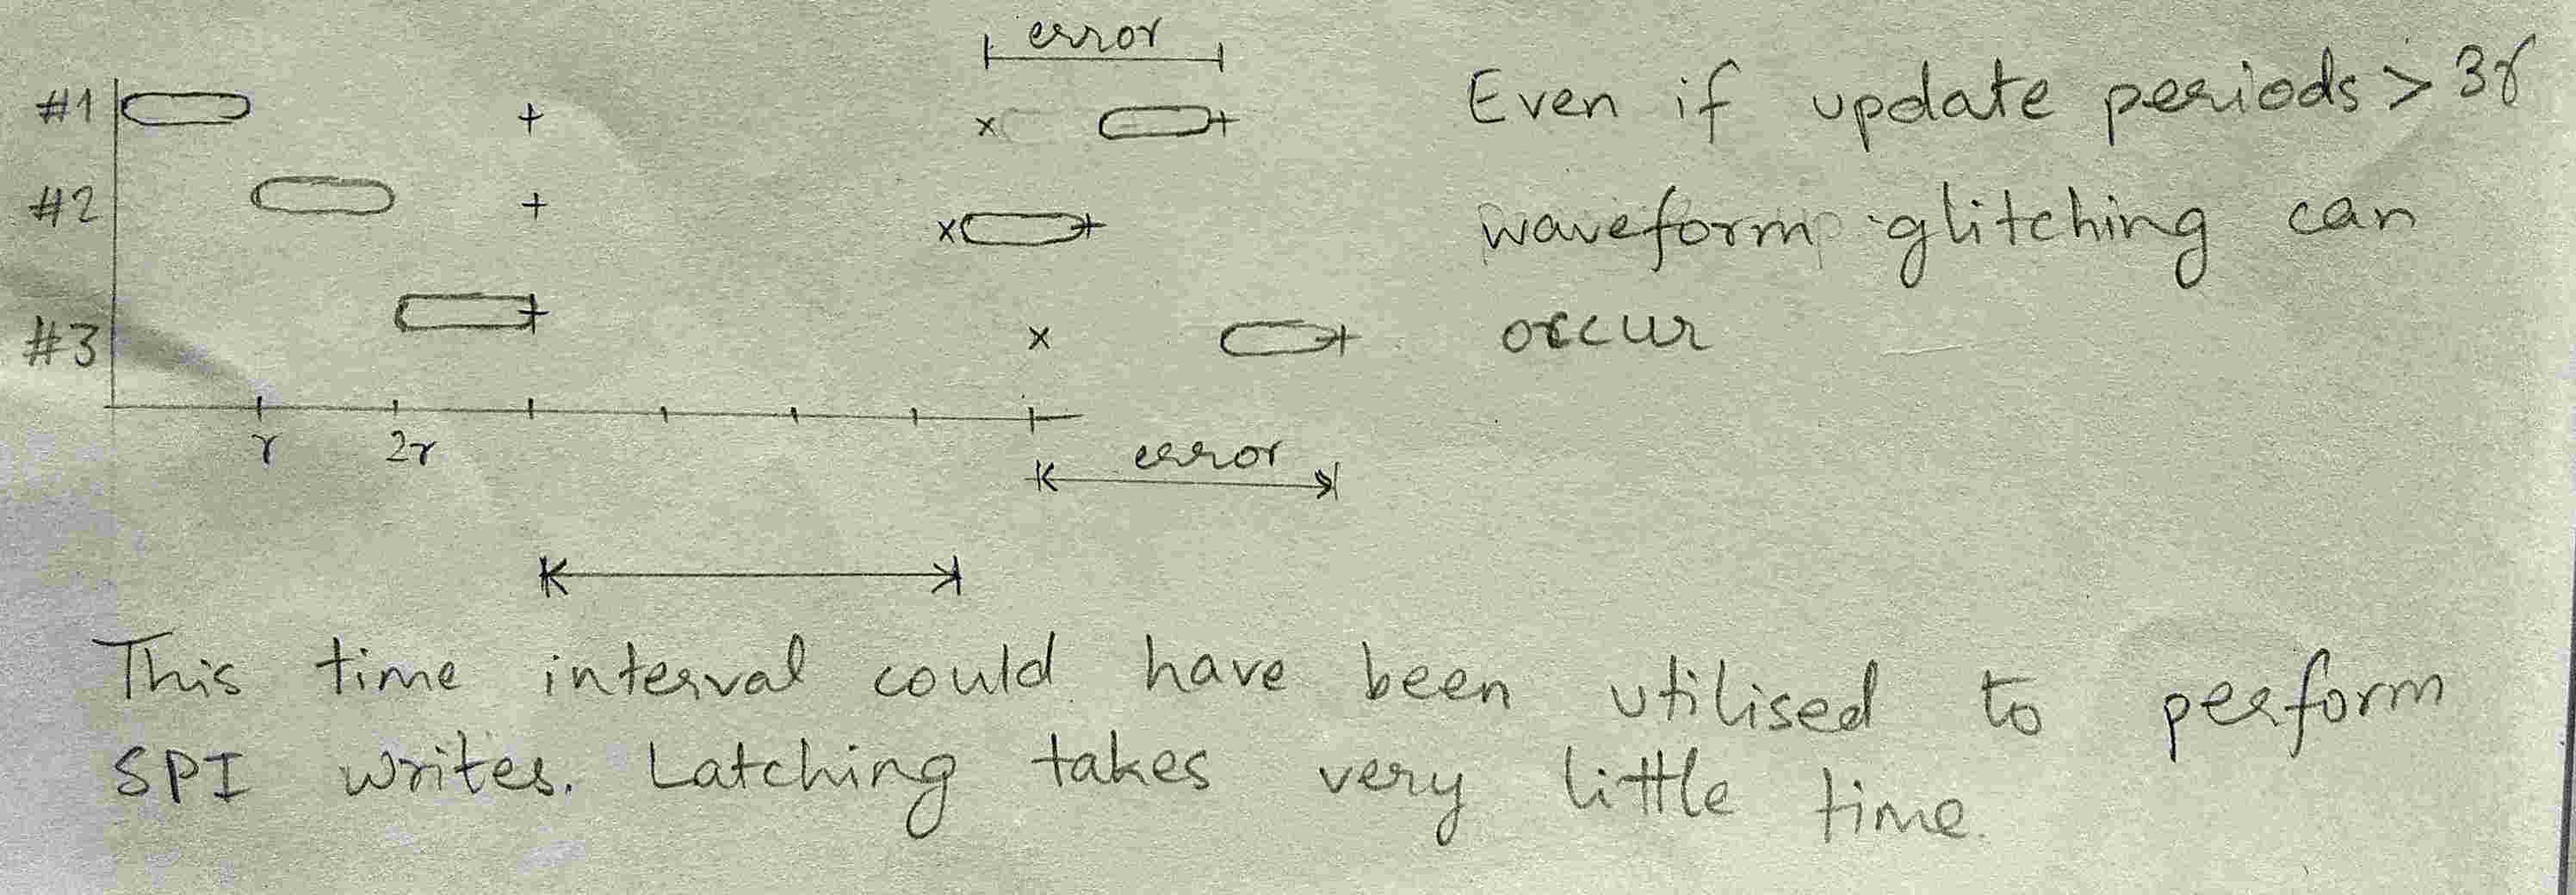 error
#1 + x + Even if update periods > 3r
#2 + x + waveform glitching can
#3 + x + occur
r 2r
error
This time interval could have been utilised to perform
SPI writes. Latching takes very little time.